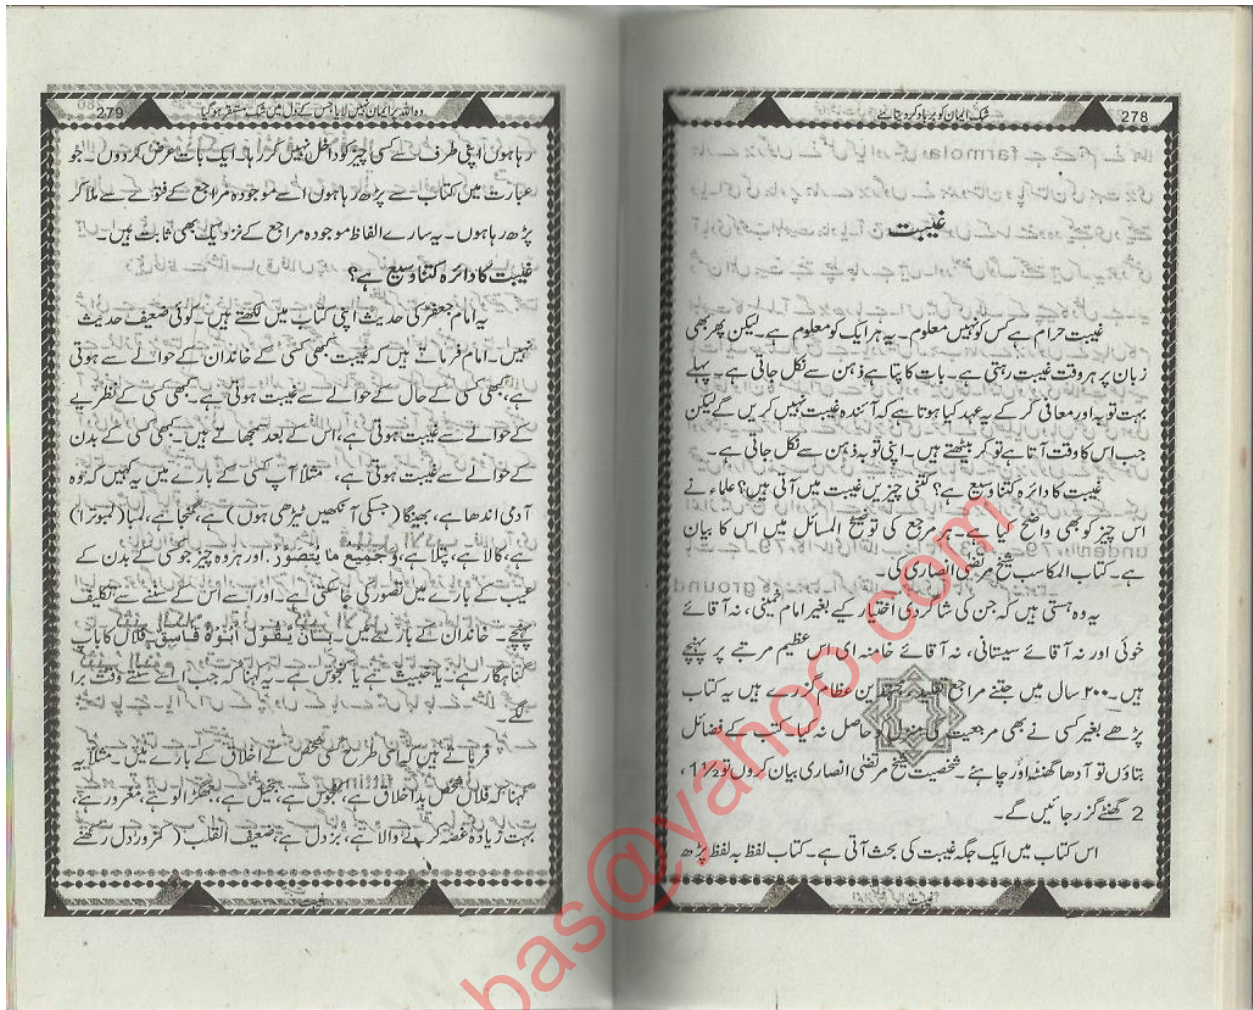 278
شک ایمان کو برباد کر دیتا ہے
غیبت
غیبت حرام ہے کس کو نہیں معلوم۔ یہ ہر ایک کو معلوم ہے۔ لیکن پھر بھی
زبان پر ہر وقت غیبت رہتی ہے۔ بات کا پتا ہے ذہن سے نکل جاتی ہے۔ پہلے
بہت توبہ اور معافی کر کے یہ عہد کیا ہوتا ہے کہ آئندہ غیبت نہیں کریں گے لیکن
جب اس کا وقت آتا ہے تو کر بیٹھتے ہیں۔ اپنی توبہ ذہن سے نکل جاتی ہے۔
غیبت کا دائرہ کتنا وسیع ہے؟ کتنی چیزیں غیبت میں آتی ہیں؟ علماء نے
اس چیز کو بھی واضح کیا ہے۔ ہر مرجع کی توضیح المسائل میں اس کا بیان
ہے۔ کتاب المکاسب شیخ مرتضی انصاری کی۔
یہ وہ ہستی ہیں کہ جن کی شاگردی اختیار کیے بغیر امام خمینی، نہ آقائے
خوئی اور نہ آقائے سیستانی، نہ آقائے خامنہ ای اس عظیم مرتبے پر پہنچے
ہیں۔ ۲۰۰ سال میں جتنے مراجع تقلید مجتہدین عظام گزرے ہیں یہ کتاب
پڑھے بغیر کسی نے بھی مرجعیت کی منزل کو حاصل نہ کیا۔ کتب کے فضائل
بتاؤں تو آدھا گھنٹہ اور چاہئے۔ شخصیت شیخ مرتضی انصاری بیان کروں تو 1½،
2 گھنٹے گزر جائیں گے۔
اس کتاب میں ایک جگہ غیبت کی بحث آتی ہے۔ کتاب لفظ بہ لفظ پڑھ
279
وہ اللہ پر ایمان نہیں لایا جس کے دل میں شک مستقر ہو گیا
رہا ہوں اپنی طرف سے کسی چیز کو داخل نہیں کر رہا۔ ایک بات عرض کر دوں۔ جو
عبارت میں کتاب سے پڑھ رہا ہوں اسے موجودہ مراجع کے فتوے سے ملا کر
پڑھ رہا ہوں۔ یہ سارے الفاظ موجودہ مراجع کے نزدیک بھی ثابت ہیں۔
غیبت کا دائرہ کتنا وسیع ہے؟
یہ امام جعفرؑ کی حدیث اپنی کتاب میں لکھتے ہیں۔ کوئی ضعیف حدیث
نہیں۔ امام فرماتے ہیں کہ غیبت کبھی کسی کے خاندان کے حوالے سے ہوتی
ہے، کبھی کسی کے حال کے حوالے سے غیبت ہوتی ہے۔ کبھی کسی کے نظریے
کے حوالے سے غیبت ہوتی ہے، اس کے بعد سمجھاتے ہیں۔ کبھی کسی کے بدن
کے حوالے سے غیبت ہوتی ہے، مثلاً آپ کسی کے بارے میں یہ کہیں کہ وہ
آدمی اندھا ہے، بھینگا (جسکی آنکھیں ٹیڑھی ہوں) ہے، گنجا ہے، لمبا (لمبوترا)
ہے، کالا ہے، پتلا ہے، وَجَمِيعُ مَا يَتَصَوَّرُ۔ اور ہر وہ چیز جو کسی کے بدن کے
عیب کے بارے میں تصور کی جا سکتی ہے۔ اور اسے اس کے سننے سے تکلیف
پہنچے۔ خاندان کے بارے میں۔ بِأَنْ يَقُوْلَ أَبُوْهُ فَاسِقٌ فلاں کا باپ
گناہگار ہے۔ یا خبیث ہے یا کنجوس ہے۔ یہ کہنا کہ جب اسے سنتے وقت برا
لگے۔
فرماتے ہیں کہ اسی طرح کسی شخص کے اخلاق کے بارے میں۔ مثلاً یہ
کہنا کہ فلاں شخص بد اخلاق ہے، کنجوس ہے، بخیل ہے، جھگڑالو ہے، مغرور ہے،
بہت زیادہ غصہ کرنے والا ہے، بزدل ہے، ضعیف القلب (کمزور دل رکھنے
bas@yahoo.com